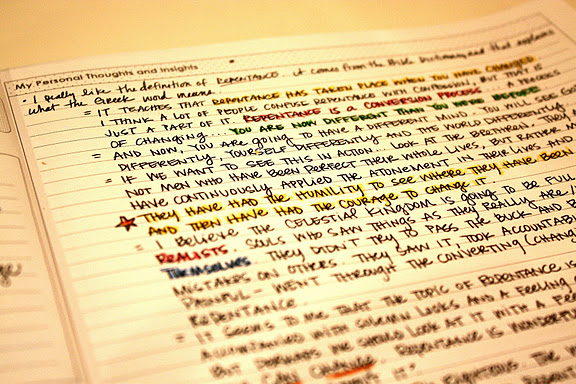 My Personal Thoughts and Insights
• I really like the definition of REPENTANCE. It comes from the Bible Dictionary and that explains
what the Greek word means.
= IT TEACHES THAT REPENTANCE HAS TAKEN PLACE WHEN YOU HAVE CHANGED.
I THINK A LOT OF PEOPLE CONFUSE REPENTANCE WITH CONFESSION. BUT THAT IS
JUST A PART OF IT. REPENTANCE IS A CONVERSION PROCESS
OF CHANGING... YOU ARE NOW DIFFERENT THAN YOU WERE BEFORE
= AND NOW, YOU ARE GOING TO HAVE A DIFFERENT MIND. YOU WILL SEE GOD
DIFFERENTLY, YOURSELF DIFFERENTLY AND THE WORLD DIFFERENTLY.
= IF WE WANT TO SEE THIS IN ACTION, LOOK AT THE BRETHREN. THEY
NOT MEN WHO HAVE BEEN PERFECT THEIR WHOLE LIVES, BUT RATHER
HAVE CONTINUOUSLY APPLIED THE ATONEMENT IN THEIR LIVES AND
THEY HAVE HAD THE HUMILITY TO SEE WHERE THEY HAVE BEEN
AND THEN HAVE HAD THE COURAGE TO CHANGE IT.
= I BELIEVE THE CELESTIAL KINGDOM IS GOING TO BE FULL
REALISTS. SOULS WHO SAW THINGS AS THEY REALLY ARE
THEMSELVES. THEY DIDN'T TRY TO PASS THE BUCK AND
MISTAKES ON OTHERS. THEY SAW IT, TOOK ACCOUNTAB
PAINFUL - WENT THROUGH THE CONVERTING (CHAN
REPENTANCE.
= IT SEEMS TO ME THAT THE TOPIC OF REPENTANCE IS
ACCOMPANIED WITH SOLEMN LOOKS AND A FEELING
BUT PERHAPS WE SHOULD LOOK AT IT WITH A FEE
I CAN CHANGE. REPENTANCE IS WONDERFUL